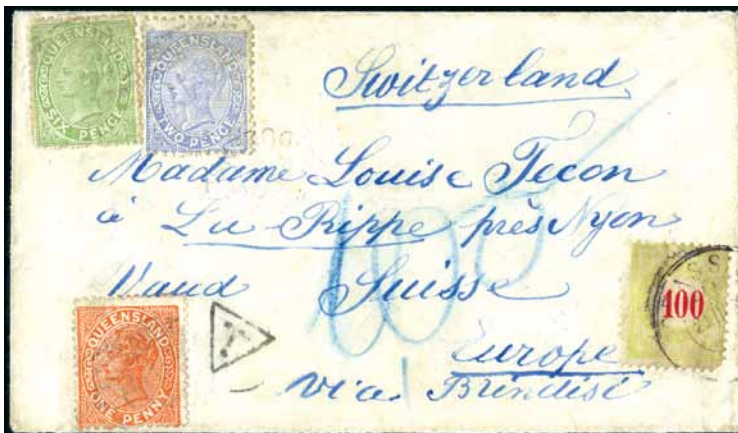 QUEENSLAND
SIX PENCE
QUEENSLAND
TWO PENCE
Switzerland
Madame Louise Tecon
à La Rippe près Nyon
Vaud Suisse
100
100
T
QUEENSLAND
ONE PENNY
Europe
via Brindisi